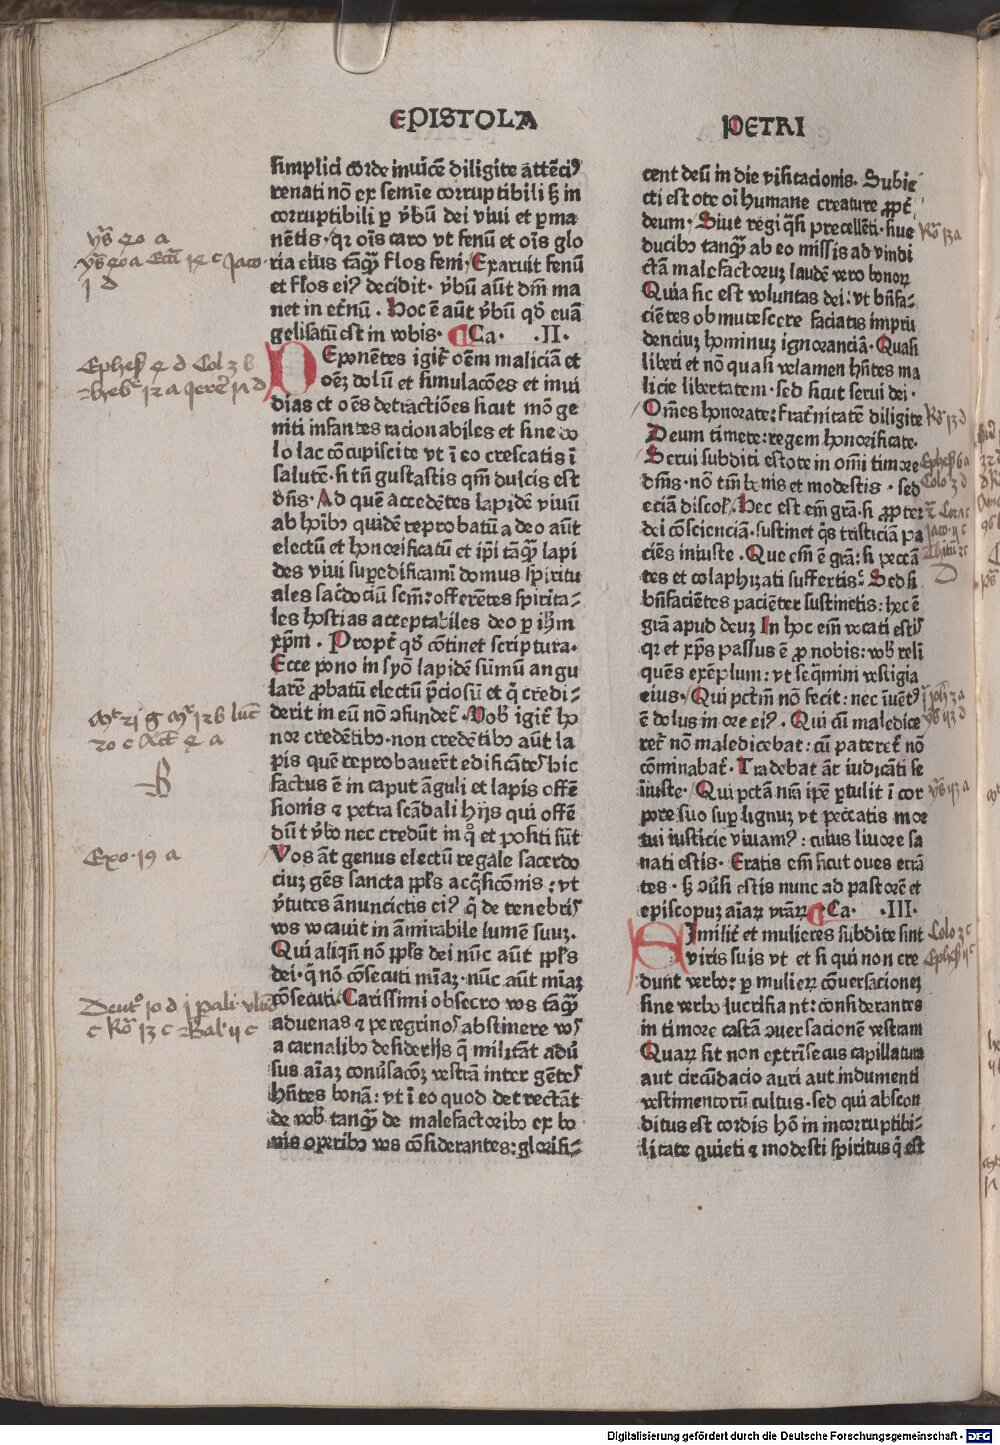 EPISTOLA
simplici corde inuicē diligite attēci⁹
renati nō ex semīe corruptibili sꝫ in
corruptibili ꝑ v̄bū dei viui et ꝑma
nētis · qꝛ oīs caro vt fenū et oīs glo
ria eius tāqꝫ flos feni · Exaruit fenū
et flos ei⁹ decidit · v̄bū aūt dn̄i ma
net in et̄nū . Hoc ē aūt v̄bū qd̄ euā
gelisatū est in vobis · Ca · .II.
DEponētes igit̄ oēm maliciā et
oēꝫ dolū et simulacōes et inui
dias et oēs detractiōes sicut mō ge
niti infantes racionabiles et sine do
lo lac cōcupiscite vt ī eo crescatis ī
salutē · si tn̄ gustastis qm̄ dulcis est
dn̄s · Ad quē accedētes lapidē viuū
ab hoībꝫ quidē reprobatū a deo aūt
electū et honorificatū et ip̄i tāqꝫ lapi
des viui suꝑedificamī domus spiritu
ales sac̄dociū scm̄ : offerētes spirita-
les hostias acceptabiles deo ꝑ ihm̄
xp̄m . Propt̄ qd̄ cōtinet scriptura ·
Ecce pono in syō lapidē sūmū angu
larē ꝓbatū electū p̄ciosū et q̄ credi-
derit in eū nō ꝯfundet̄ · Vob̄ igit̄ ho
nor credētibꝫ · non credētibꝫ aūt la
pis quē reprobauer̄t edificātes hic
factus ē in caput āguli et lapis offē
sionis ⁊ petra scādali hijs qui offē
dūt v̄bo nec credūt in q̊ et positi sūt
Vos āt genus electū regale sacerdo
ciuꝫ gēs sancta ppl̄s acq̄sicōnis : vt
v̄tutes ānuncietis ei⁹ q̄ de tenebris
vos vocauit in āmirabile lumē suuꝫ ·
Qui aliqn̄ nō ppl̄s dei nūc aūt ppl̄s
dei · q̄ nō cōsecuti mīaꝫ · nūc aūt mīaꝫ
cōsecuti · Carissimi obsecro vos tāqꝫ
aduenas ⁊ peregrinos abstinere vos
a carnalibꝫ desiderijs q̄ militāt adū
sus aīaꝫ conūsacōꝫ vestrā inter gētes
hn̄tes bonā : vt ī eo quod detrectāt
de vob̄ tanqꝫ de malefactoribꝫ ex bo
nis operibꝫ vos cōsiderantes : glorifi-
PETRI
cent deū in die visitacionis · Subie
cti estote oī humane creature ꝓpt̄
deum · Siue regi q̄si precellēti · siue
ducibꝫ tanqꝫ ab eo missis ad vindi
ctā malefactoruꝫ laudē vero bonoꝝ
Quia sic est voluntas dei : vt bn̄fa-
ciētes obmutescere faciatis impru
denciuꝫ hominuꝫ ignoranciā · Quasi
liberi et nō quasi velamen hn̄tes ma
licie libertatem · sed sicut serui dei ·
Om̄es honorate : frat̄nitatē diligite
Deum timete : regem honorificate ·
Serui subditi estote in om̄i timore
dn̄is · nō tm̄ bonis et modestis · sed
eciā discol̄ · Hec est em̄ gr̄a · si ꝓpter
dei cōscienciā · sustinet q̄s tristiciā pa
ciēs iniuste · Que em̄ ē gr̄a : si peccā
tes et colaphizati suffertis : Sed si
bn̄faciētes paciēter sustinetis : hec ē
gr̄a apud deuꝫ In hoc em̄ vocati estis
qꝛ et xp̄s passus ē ꝓ nobis : vob̄ reli
quēs exēplum : vt seq̄mini vestigia
eius · Qui pctm̄ nō fecit : nec iuēt⁹
ē dolus in ore ei⁹ . Qui cū maledice
ret̄ nō maledicebat : cū pateret̄ nō
cōminabat̄ · Tradebat āt iudicāti se
īiuste · Qui pctā nr̄a ip̄e ꝑtulit ī cor
pore suo suꝑ lignuꝫ vt peccatis mor
tui iusticie viuam⁹ : cuius liuore sa
nati estis · Eratis em̄ sicut oues errā
tes · sꝫ ꝯūsi estis nunc ad pastorē et
episcopuꝫ aīaꝝ vr̄aꝝ Ca · .III.
SImilit̄ et mulieres subdite sint
viris suis vt et si qui non cre
dunt verbo : ꝑ mulieꝝ cōuersacionem
sine verbo lucrifiant : considerantes
in timore castā ꝯuersacionē vestram
Quaꝝ sit non extrīsecus capillatura
aut circūdacio auri aut indumenti
vestimentorū cultus · sed qui abscon
ditus est cordis hō in incorruptibi-
litate quieti ⁊ modesti spiritus q̄ est
Exo · 19 a
Digitalisierung gefördert durch die Deutsche Forschungsgemeinschaft - DFG